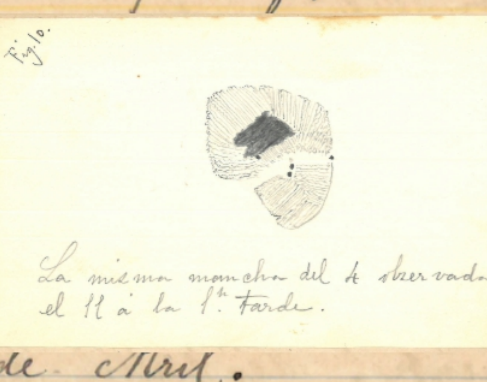 Fig. 10.
La misma mancha del 4 observada
el 11 á la 1.h tarde.
de Abril.